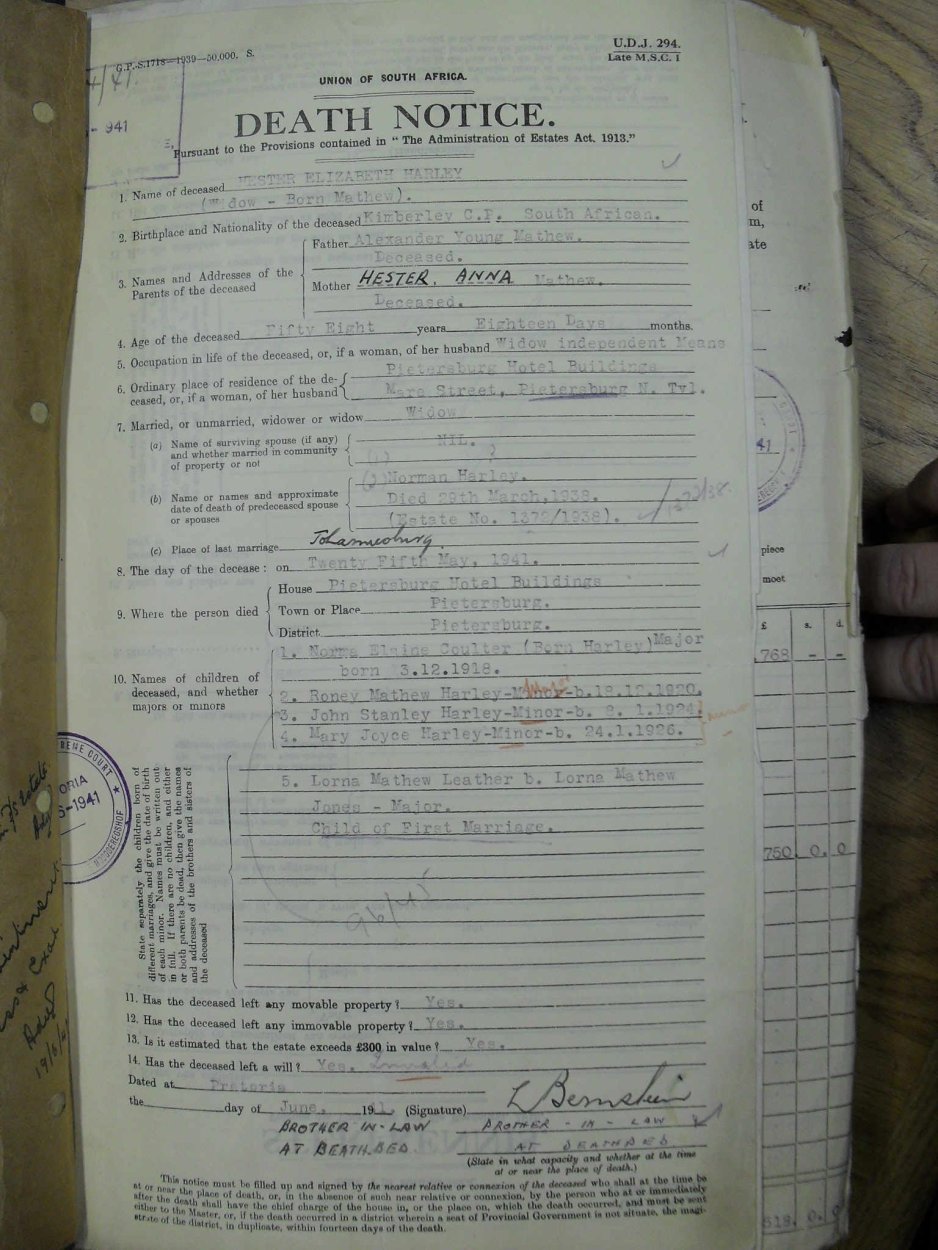 U.D.J. 294.
Late M.S.C. 1
G.P.-S.1718—1939—50,000. S.
/41.
- 941
UNION OF SOUTH AFRICA.
DEATH NOTICE.
Pursuant to the Provisions contained in "The Administration of Estates Act, 1913."
1. Name of deceased HESTER ELIZABETH HARLEY
(Widow - Born Mathew).
2. Birthplace and Nationality of the deceased Kimberley C.P. South African.
3. Names and Addresses of the Parents of the deceased
Father Alexander Young Mathew.
Deceased.
Mother HESTER, ANNA Mathew.
Deceased.
4. Age of the deceased Fifty Eight years Eighteen Days months.
5. Occupation in life of the deceased, or, if a woman, of her husband Widow independent Means
6. Ordinary place of residence of the de-
ceased, or, if a woman, of her husband
Pietersburg Hotel Buildings
Mare Street, Pietersburg N. Tvl.
7. Married, or unmarried, widower or widow Widow
(a) Name of surviving spouse (if any)
and whether married in community
of property or not
NIL.
(1) ?
(b) Name or names and approximate
date of death of predeceased spouse
or spouses
Norman Harley.
Died 29th March, 1938.
(Estate No. 1372/1938).
(c) Place of last marriage Johannesburg.
8. The day of the decease: on Twenty Fifth May, 1941.
9. Where the person died
House Pietersburg Hotel Buildings
Town or Place Pietersburg.
District Pietersburg.
10. Names of children of
deceased, and whether
majors or minors
1. Norma Elaine Coulter (Born Harley) Major
born 3.12.1918.
2. Roney Mathew Harley-Minor-b.18.12.1920.
3. John Stanley Harley-Minor-b. 8. 1.1924.
4. Mary Joyce Harley-Minor-b. 24.1.1926.
State separately the children born of
different marriages, and give the date of birth
of each minor. Names must be written out
in full. If there are no children, and either
or both parents be dead, then give the names
and addresses of the brothers and sisters of
the deceased
5. Lorna Mathew Leather b. Lorna Mathew
Jones - Major.
Child of First Marriage.
11. Has the deceased left any movable property? Yes.
12. Has the deceased left any immovable property? Yes.
13. Is it estimated that the estate exceeds £300 in value? Yes.
14. Has the deceased left a will? Yes.
Dated at Pretoria
the day of June, 1941. (Signature) L Bernstein
BROTHER IN-LAW
AT DEATH BED
BROTHER - IN - LAW
AT DEATHBED
(State in what capacity and whether at the time
at or near the place of death.)
This notice must be filled up and signed by the nearest relative or connexion of the deceased who shall at the time be
at or near the place of death, or, in the absence of such near relative or connexion, by the person who at or immediately
after the death shall have the chief charge of the house in, or the place on, which the death occurred, and must be sent
either to the Master, or, if the death occurred in a district wherein a seat of Provincial Government is not situate, the magi-
strate of the district, in duplicate, within fourteen days of the death.
COURT
ORIA
5-1941
19/6/4
of
m,
ate
41
piece
moet
£ s. d.
768 - -
750. 0. 0
618. 0. 0